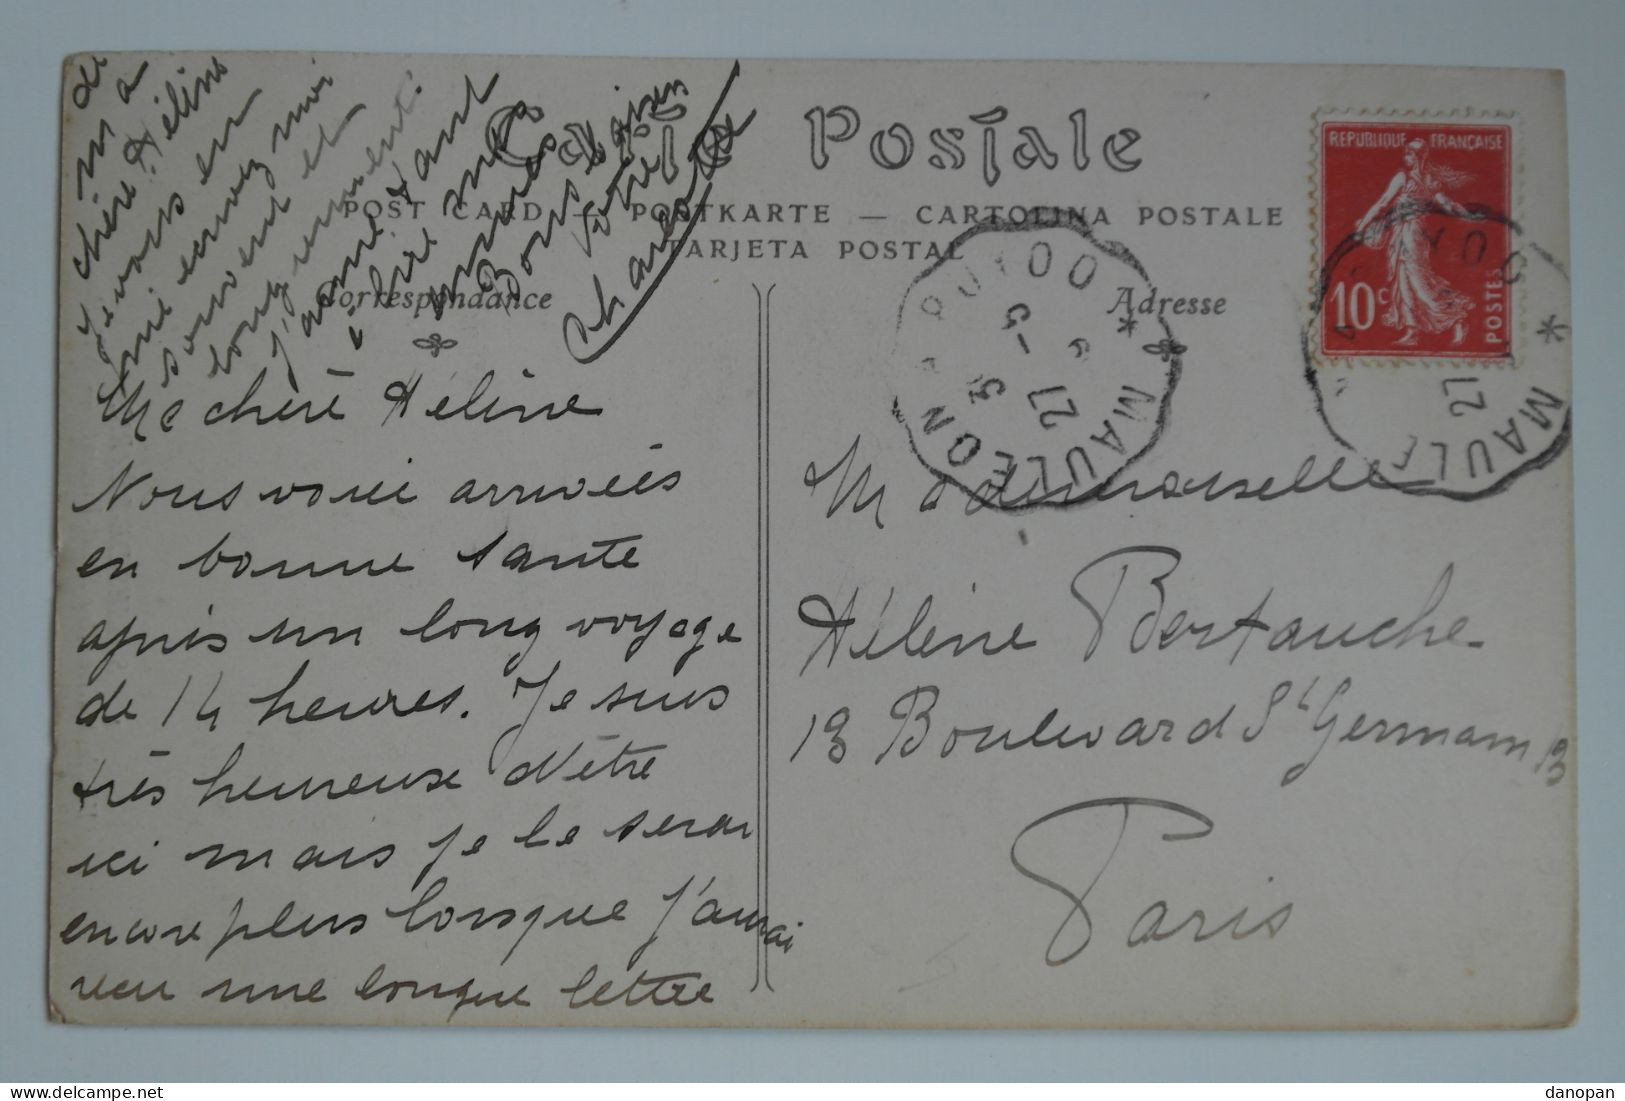 Carte Postale
POST CARD — POSTKARTE — CARTOLINA POSTALE
TARJETA POSTAL
Correspondance
Adresse
REPUBLIQUE FRANÇAISE
10c
POSTES
PUYOO * MAULEON
5 - 5
27
* MAUL
27
Ma chère Hélène
Nous voici arrivées
en bonne santé
après un long voyage
de 14 heures. Je suis
très heureuse d'être
ici mais je le serai
encore plus lorsque j'aurai
reçu une longue lettre
de
ma
chère Hélène
Je vous en
prie envoyez moi
souvent et
longuement:
j'aime tant
à lire
Bons baisers
Votre
Mademoiselle
Hélène Bertauche
13 Boulevard St Germain 13
Paris
danopan